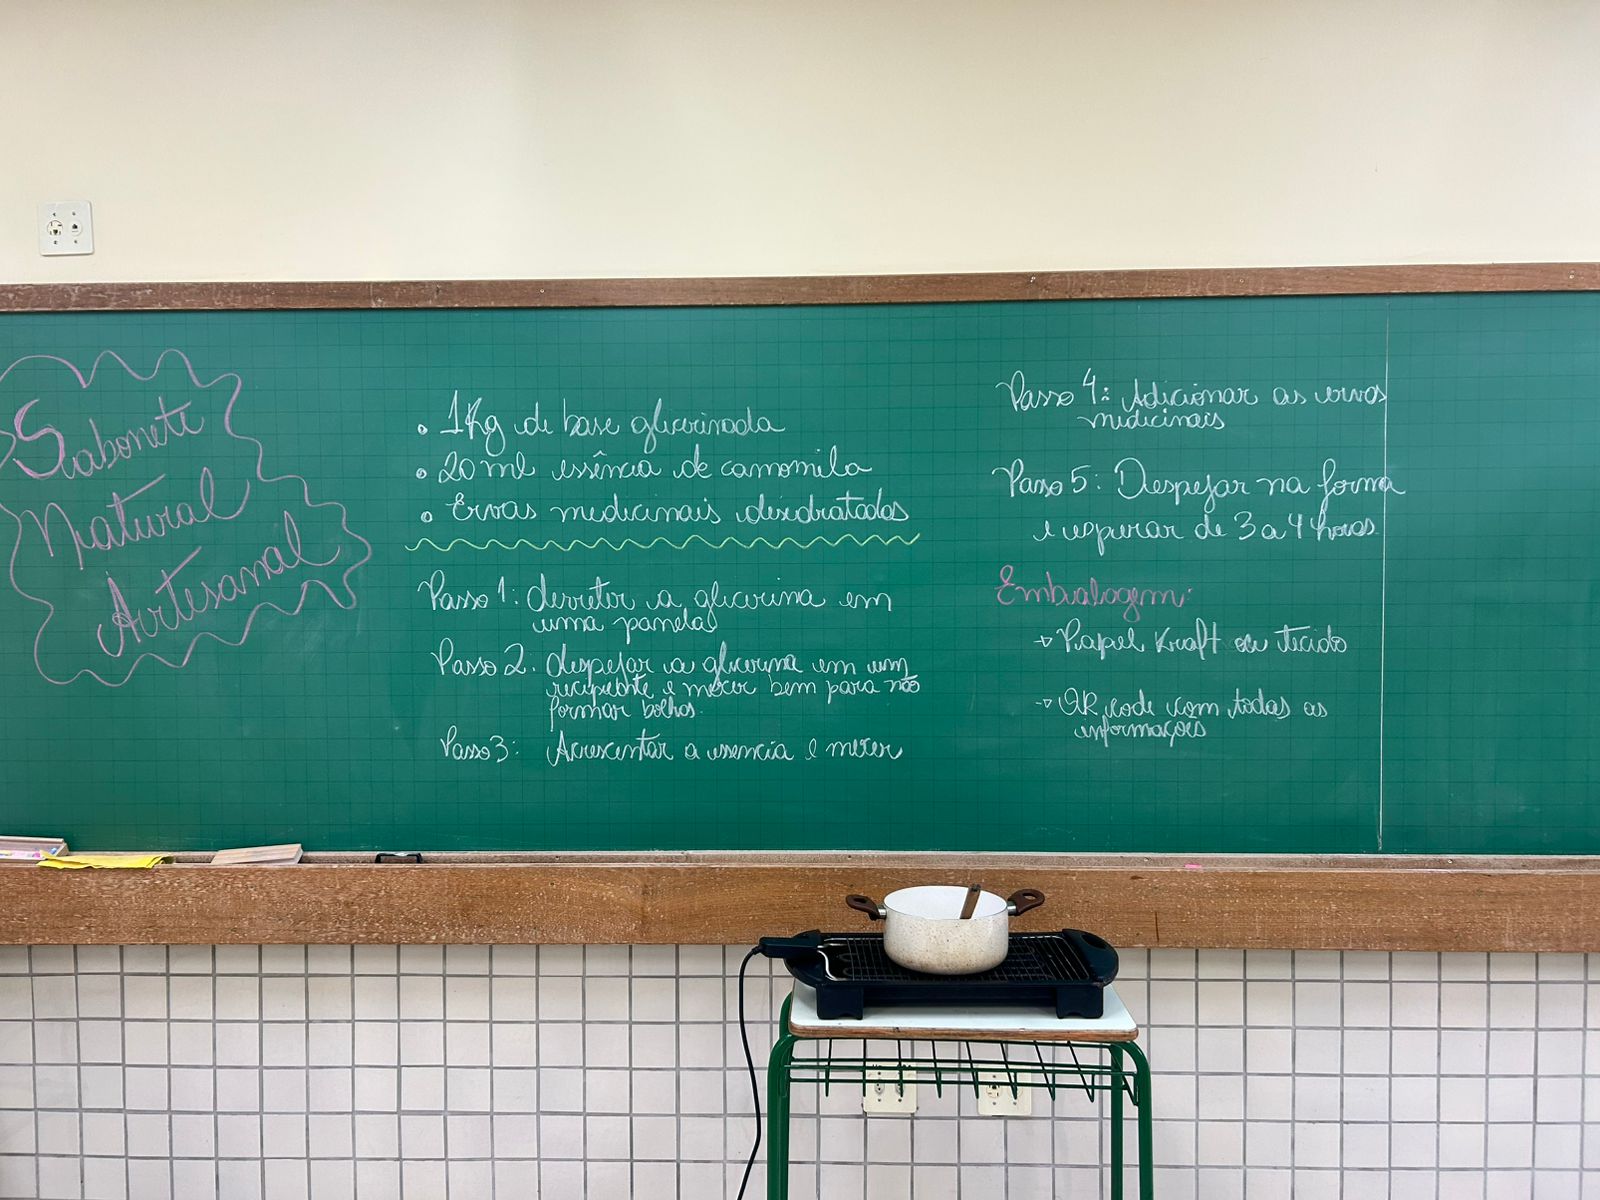 Sabonete
Natural
Artesanal
• 1Kg de base glicerinada
• 20 ml essência de camomila
• Ervas medicinais desidratadas
Passo 1: derreter a glicerina em
uma panela
Passo 2. despejar a glicerina em um
recipiente e mexer bem para não
formar bolhas.
Passo 3: Acrescentar a essencia e mexer
Passo 4: Adicionar as ervas
medicinais
Passo 5: Despejar na forma
e esperar de 3 a 4 horas.
Embalagem:
→ Papel Kraft ou tecido
→ QR code com todas as
informações